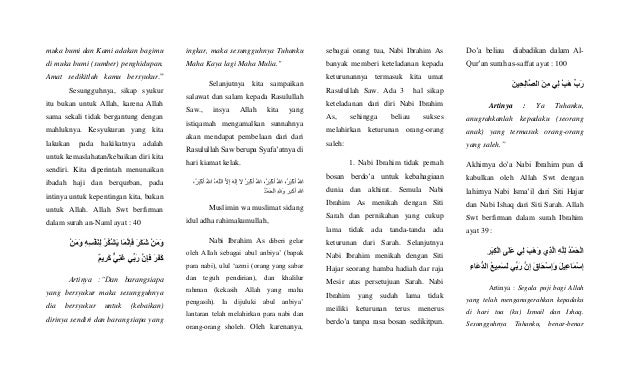 muka bumi dan Kami adakan bagimu
di muka bumi (sumber) penghidupan.
Amat sedikitlah kamu bersyukur."
Sesungguhnya, sikap syukur
itu bukan untuk Allah, karena Allah
sama sekali tidak bergantung dengan
mahluknya. Kesyukuran yang kita
lakukan pada hakikatnya adalah
untuk kemaslahatan/kebaikan diri kita
sendiri. Kita diperintah menunaikan
ibadah haji dan berqurban, pada
intinya untuk kepentingan kita, bukan
untuk Allah. Allah Swt berfirman
dalam surah an-Naml ayat : 40
وَمَنْ شَكَرَ فَإِنَّمَا يَشْكُرُ لِنَفْسِهِ وَمَنْ
كَفَرَ فَإِنَّ رَبِّي غَنِيٌّ كَرِيمٌ
Artinya :"Dan barangsiapa
yang bersyukur maka sesungguhnya
dia bersyukur untuk (kebaikan)
dirinya sendiri dan barangsiapa yang
ingkar, maka sesungguhnya Tuhanku
Maha Kaya lagi Maha Mulia."
Selanjutnya kita sampaikan
salawat dan salam kepada Rasulullah
Saw., insya Allah kita yang
istiqamah mengamalkan sunnahnya
akan mendapat pembelaan dari dari
Rasulullah Saw berupa Syafa'atnya di
hari kiamat kelak.
اللهُ أَكْبَرُ، اللهُ أَكْبَرُ، اللهُ أَكْبَرُ، لَا إِلَهَ إِلَّا اللَّهُ، اللهُ أَكْبَرُ،
اللهُ أَكْبَر وَلِلهِ الْحَمْدُ
Muslimin wa muslimat sidang
idul adha rahimakumullah,
Nabi Ibrahim As diberi gelar
oleh Allah sebagai abul anbiya' (bapak
para nabi), ulul 'azmi (orang yang sabar
dan teguh pendirian), dan khalilur
rahman (kekasih Allah yang maha
pengasih). Ia dijuluki abul anbiya'
lantaran telah melahirkan para nabi dan
orang-orang sholeh. Oleh karenanya,
sebagai orang tua, Nabi Ibrahim As
banyak memberi keteladanan kepada
keturunannya termasuk kita umat
Rasulullah Saw. Ada 3 hal sikap
keteladanan dari diri Nabi Ibrahim
As, sehingga beliau sukses
melahirkan keturunan orang-orang
saleh:
1. Nabi Ibrahim tidak pernah
bosan berdo'a untuk kebahagiaan
dunia dan akhirat. Semula Nabi
Ibrahim As menikah dengan Siti
Sarah dan pernikahan yang cukup
lama tidak ada tanda-tanda ada
keturunan dari Sarah. Selanjutnya
Nabi Ibrahim menikah dengan Siti
Hajar seorang hamba hadiah dar raja
Mesir atas persetujuan Sarah. Nabi
Ibrahim yang sudah lama tidak
meiliki keturunan terus menerus
berdo'a tanpa rasa bosan sedikitpun.
Do'a beliau diabadikan dalam Al-
Qur'an surah as-saffat ayat : 100
رَبِّ هَبْ لِي مِنَ الصَّالِحِينَ
Artinya : Ya Tuhanku,
anugrahkanlah kepadaku (seorang
anak) yang termasuk orang-orang
yang saleh."
Akhirnya do'a Nabi Ibrahim pun di
kabulkan oleh Allah Swt dengan
lahirnya Nabi Isma'il dari Siti Hajar
dan Nabi Ishaq dari Siti Sarah. Allah
Swt berfirman dalam surah Ibrahim
ayat 39 :
الْحَمْدُ لِلَّهِ الَّذِي وَهَبَ لِي عَلَى الْكِبَرِ
إِسْمَاعِيلَ وَإِسْحَاقَ إِنَّ رَبِّي لَسَمِيعُ الدُّعَاءِ
Artinya : Segala puji bagi Allah
yang telah menganugerahkan kepadaku
di hari tua (ku) Ismail dan Ishaq.
Sesungguhnya Tuhanku, benar-benar